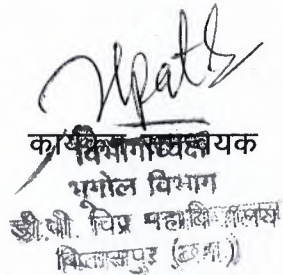 कार्यक्रम समन्वयक
विभागाध्यक्ष
भूगोल विभाग
डी.पी. विप्र महाविद्यालय
बिलासपुर (छ.ग.)